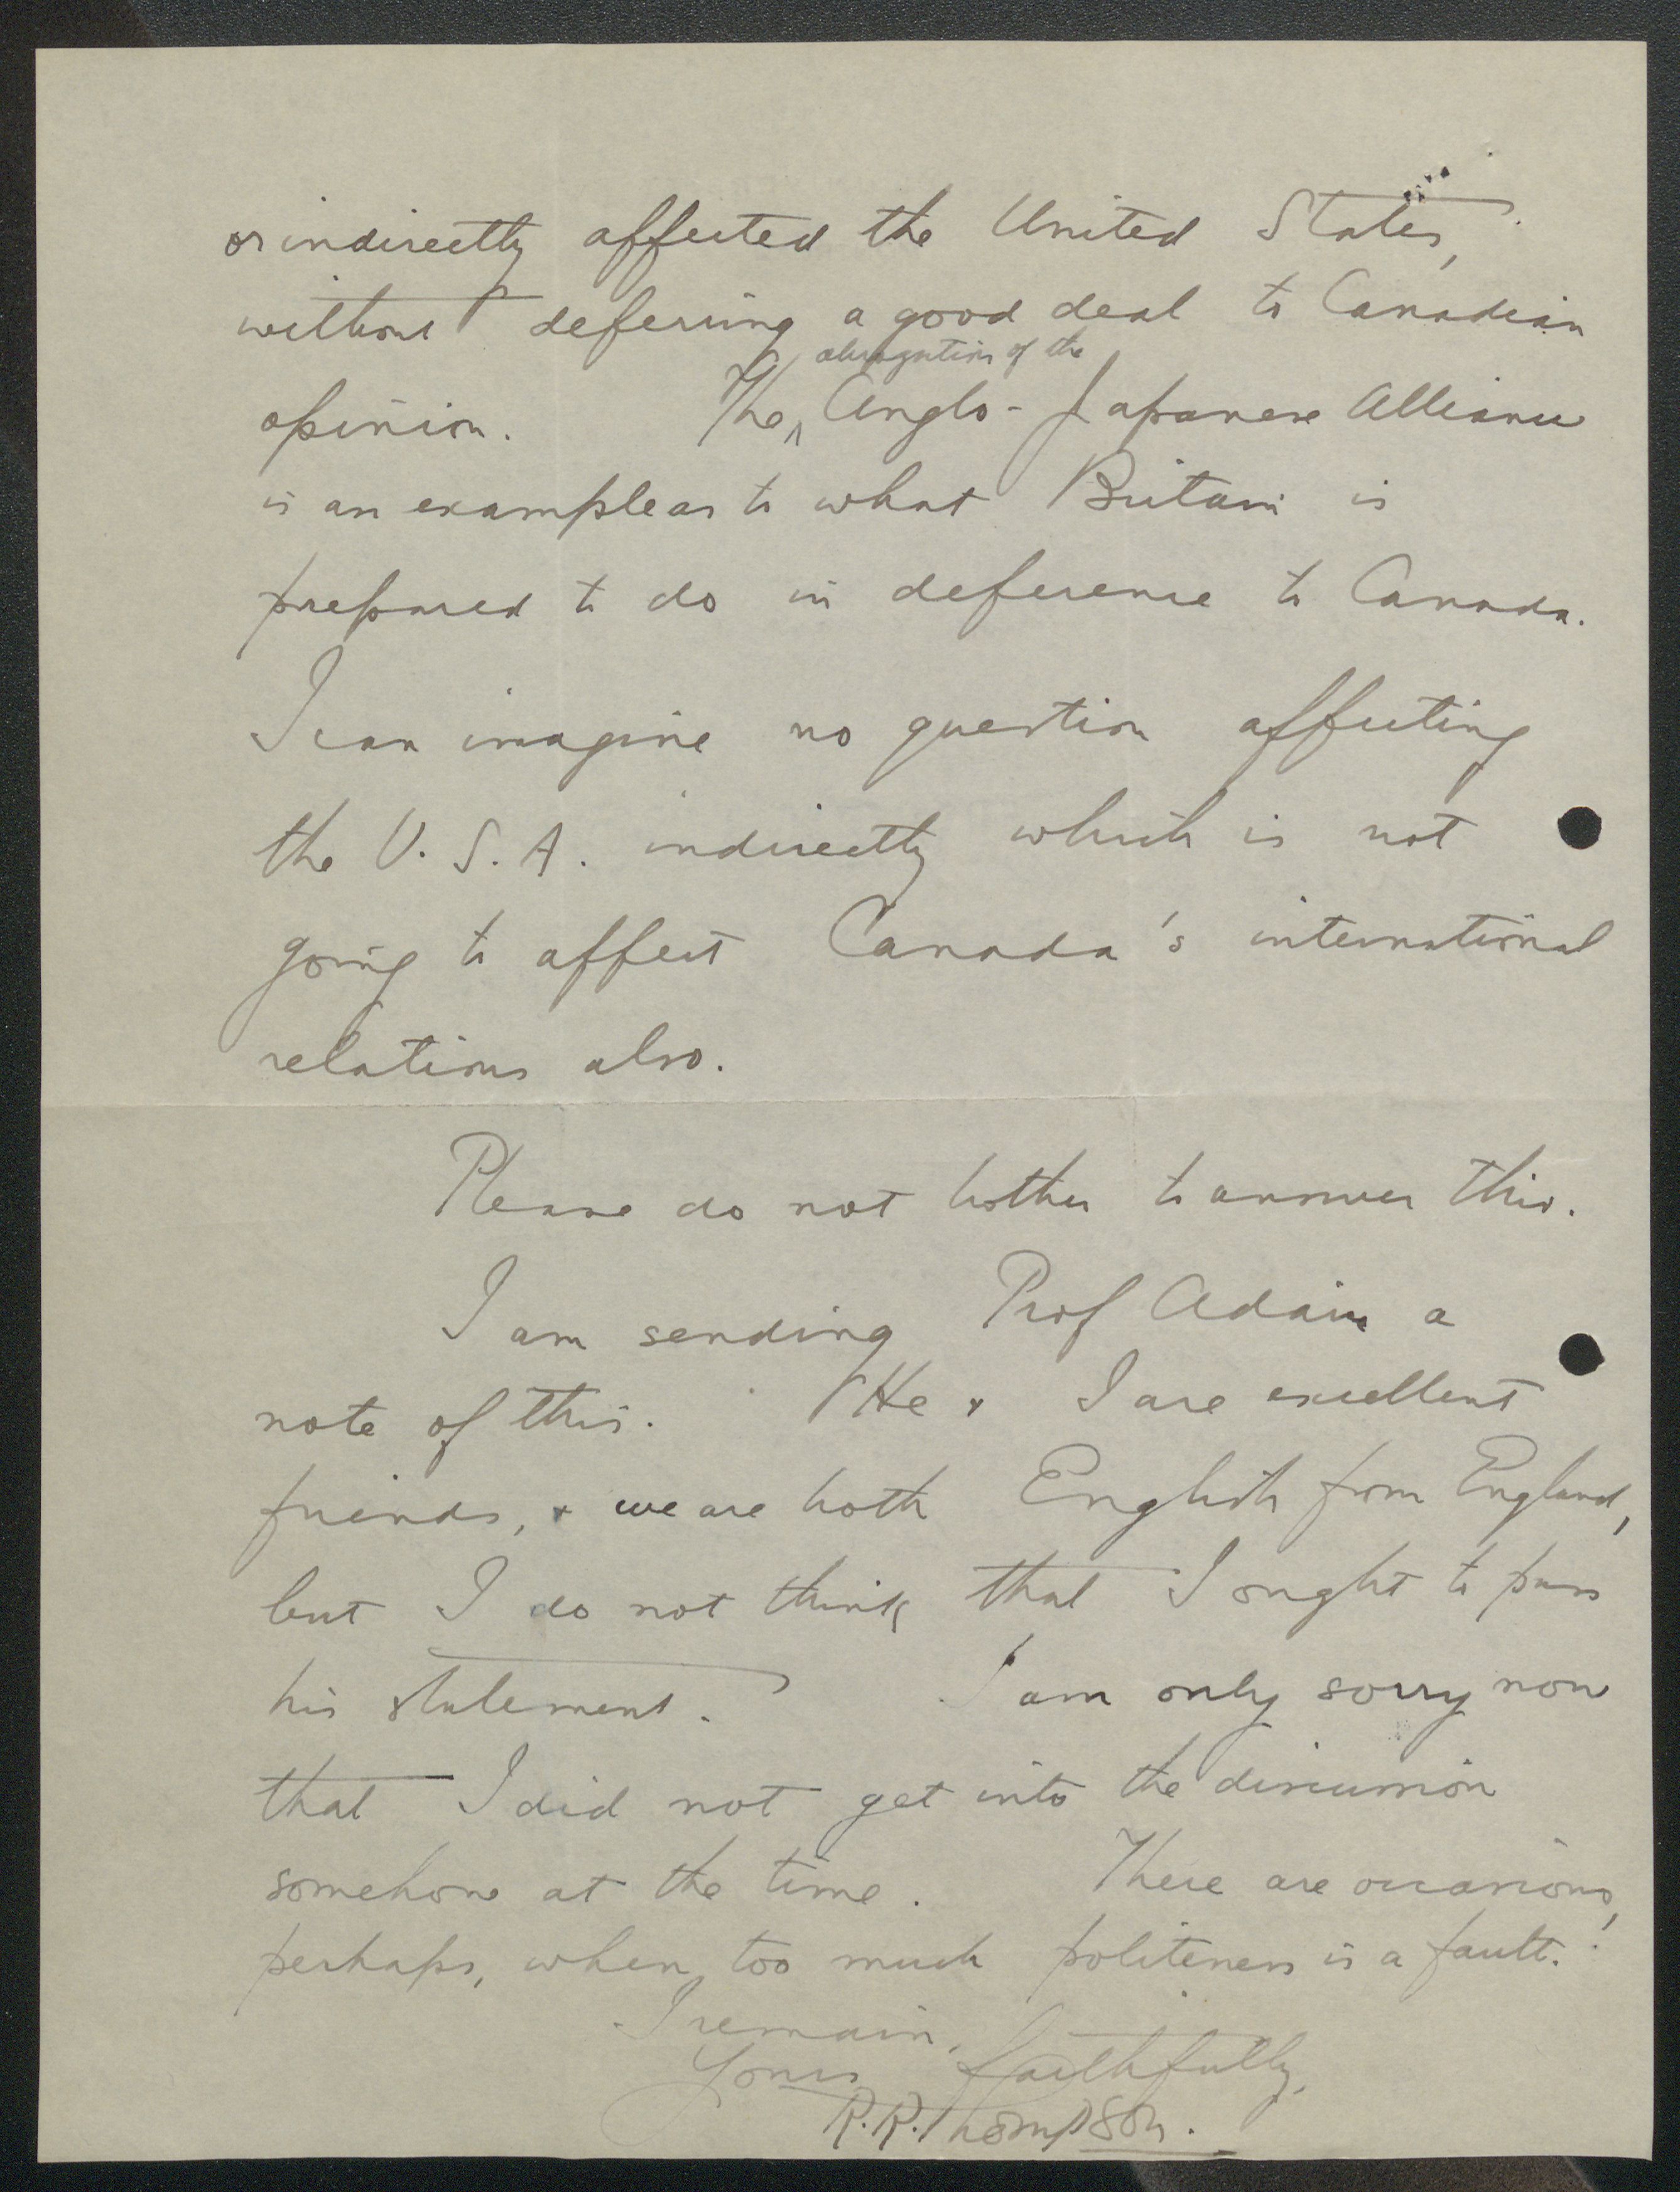 or indirectly affected the United States,
without deferring a good deal to Canadian
abrogation of the
opinion. The ^ Anglo-Japanese Alliance
is an example as to what Britain is
prepared to do in deference to Canada.
I can imagine no question affecting
the U.S.A. indirectly which is not
going to affect Canada's international
relations also.
Please do not bother to answer this.
I am sending Prof Adair a
note of this. He & I are excellent
friends, & we are both English from England,
but I do not think that I ought to pass
his statement. I am only sorry now
that I did not get into the discussion
somehow at the time. There are occasions,
perhaps, when too much politeness is a fault.
I remain,
Yours faithfully,
R.R. Thompson.